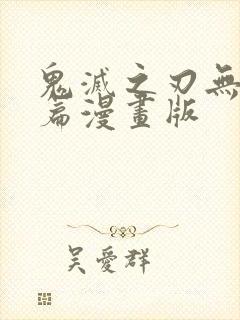 鬼滅之刃無
篇漫畫版
吳愛群